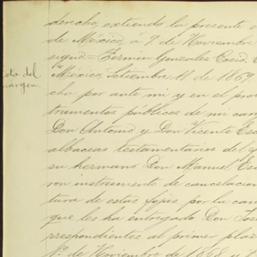 derecho, extiendo la presente
de México á 9 de Noviembre
signo = Fermin Gonzalez Cosio.
México, Setiembre 11 de 1869
cho por ante mi y en el pro
trumentos públicos de un
Don Antonio y Don Vicente Es
albaceas testamentarios del
su hermano Don Manuel Es
ron instrumento de cancelacion
tura de estas fojas por la can
que les ha entregado Don José
rrespondientes al primer plaz
de Noviembre de 1868 y
do del
margen